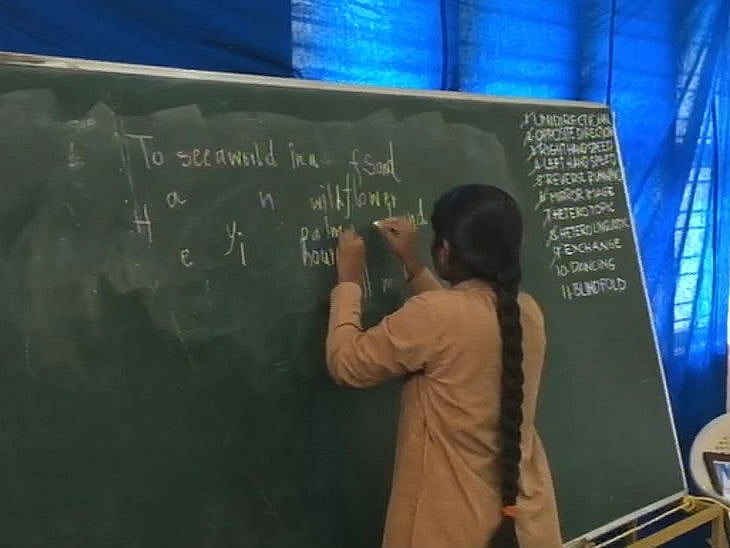 To see a world in a f Sand
a n wildflower
H palm nd
e y i hour
ll m
1 UNIDIRECTIONAL
2 OPPOSITE DIRECTION
3 RIGHT HAND SPEED
4 LEFT HAND SPEED
5 REVERSE RUNNING
6 MIRROR IMAGE
7 HETEROTOPIC
8 HETEROLINGUISTIC
9 EXCHANGE
10 DANCING
11 BLINDFOLD